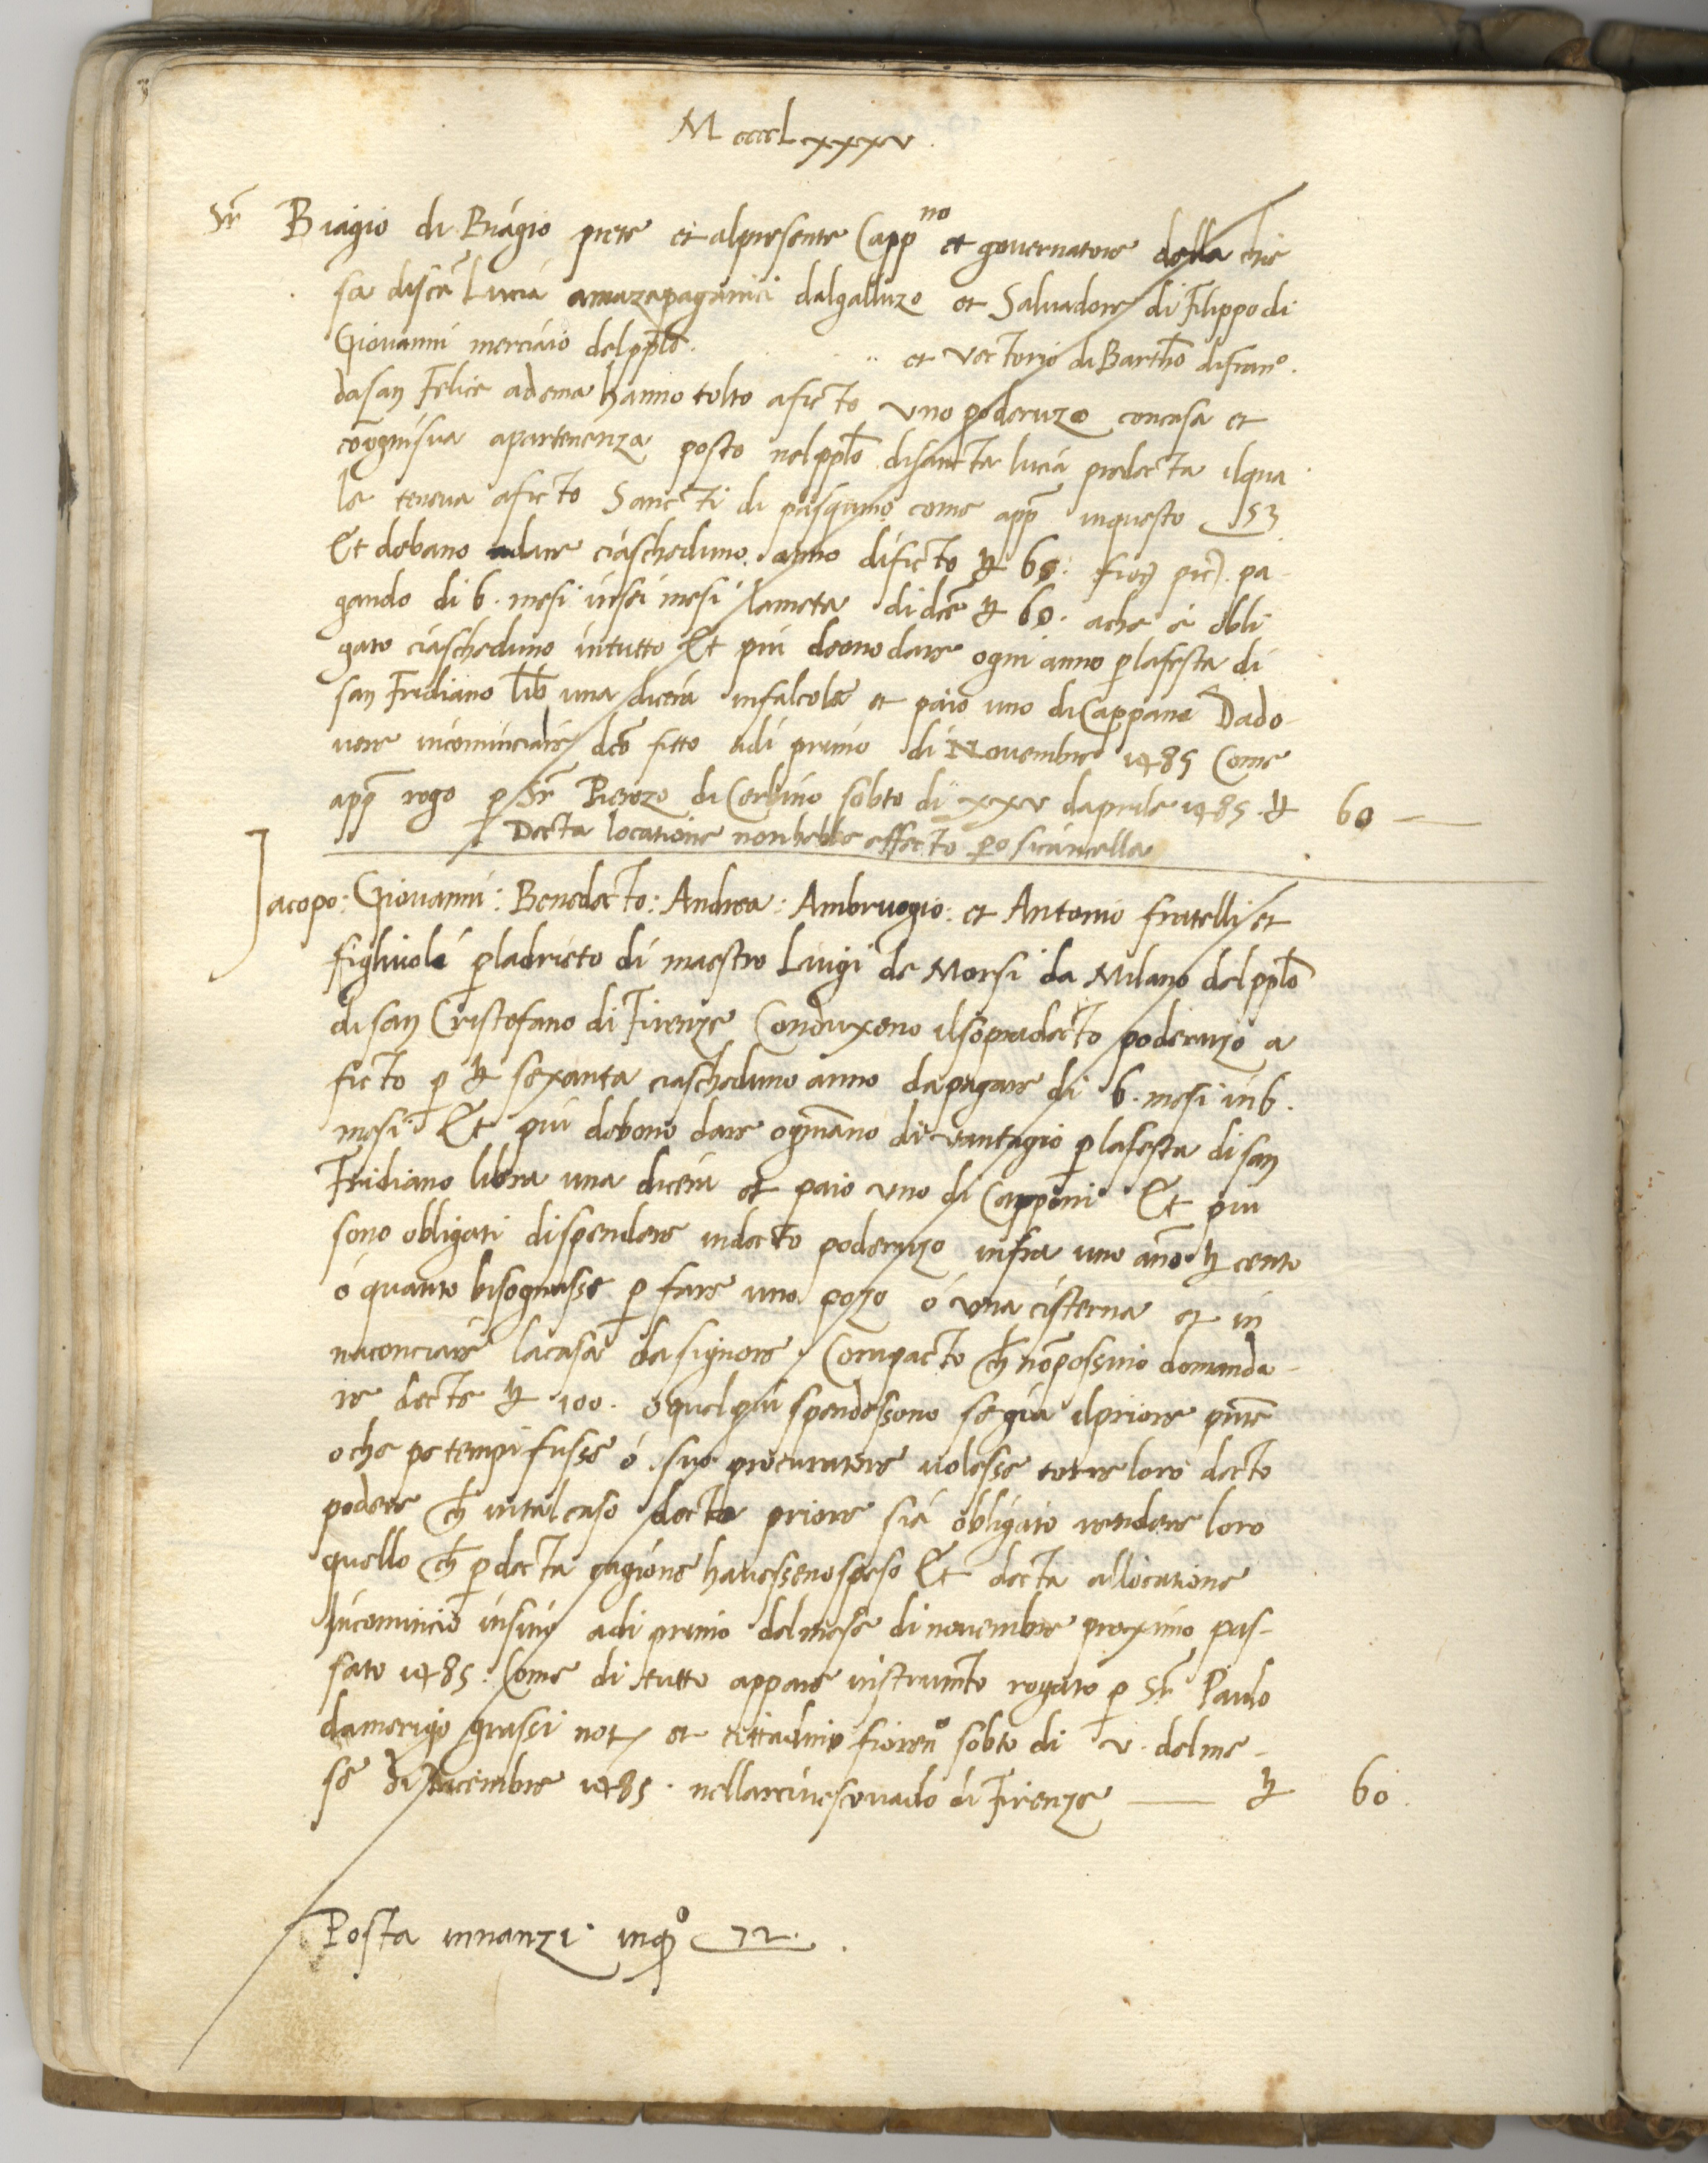 MccccLxxxv
Sr Biagio di Biagio prete et alpresente Cappno et governatore della chie
sa discã Lucia amazapagani dalgalluzo et Salvadore di Filippo di
Giovanni merciaio delpplo. et Vectorio di Bartho difrano.
dasan Felice adema hanno tolto aficto uno poderuzo concasa et
cõognisua apartenenza posto nelpplo disancta lucia predecta ilqua
le teneva aficto Sancti di pasquino come app inquesto 53
Et debano adare ciascheduno anno dificto ₶ 60. fior pic. pa
gando di 6. mesi insei mesi lameta di dcẽ ₶ 60. ache é obli
gato ciascheduno intutto Et piu deono dare ogni anno plafesta di
san Fridiano lib una dicera infalcole et paio uno di Cappane Dado
vere incominciare dco fitto adi primo di Novembre 1485 Come
app rogo p Sr Pierozo di Cerbino sobto di xxv daprile 1485. ₶ 60 —
Decta locatione nonhebbe effecto po sicancella
Jacopo: Giovanni: Benedecto: Andrea: Ambruogio: et Antonio fratelli et
figliuoli pladrieto di maestro Luigi de Morsi da Milano delpplo
di san Cristofano di Firenze Conduxeno ilsopradecto poderuzo a
ficto p ₶ sexanta ciascheduno anno dapagare di 6. mesi in6.
mesi Et piu debono dare ogniãno di vantagio plafesta disan
Fridiano libra una dicera et paio uno di Capponi Et piu
sono obligati dispendere indecto poderuzo infra uno ãno ₶ cento
ó quanto bisognasse p fare uno pozo ó una cisterna et in
raconciare lacasa dasignore Compacto ch nõpossino domanda
re decte ₶ 100. oquelpiu spendessono segia ilpriore pnte
oche pe tempi fusse ó suo procuratore volesse torre loro decto
podere ch intalcaso decto priore sia obligato rendere loro
quello ch pdecta cagione havessenospeso Et decta allocatione
Incomincio insino adi primo delmese di novembre proximo pas-
sato 1485. Come di tutto appare instrumto rogato p Sr Paulo
damerigo grassi not et cittadino fioreno sobto di v. delme-
se didicembre 1485. nellarcivescovado di Firenze — ₶ 60.
Posta innanzi inqo 72.